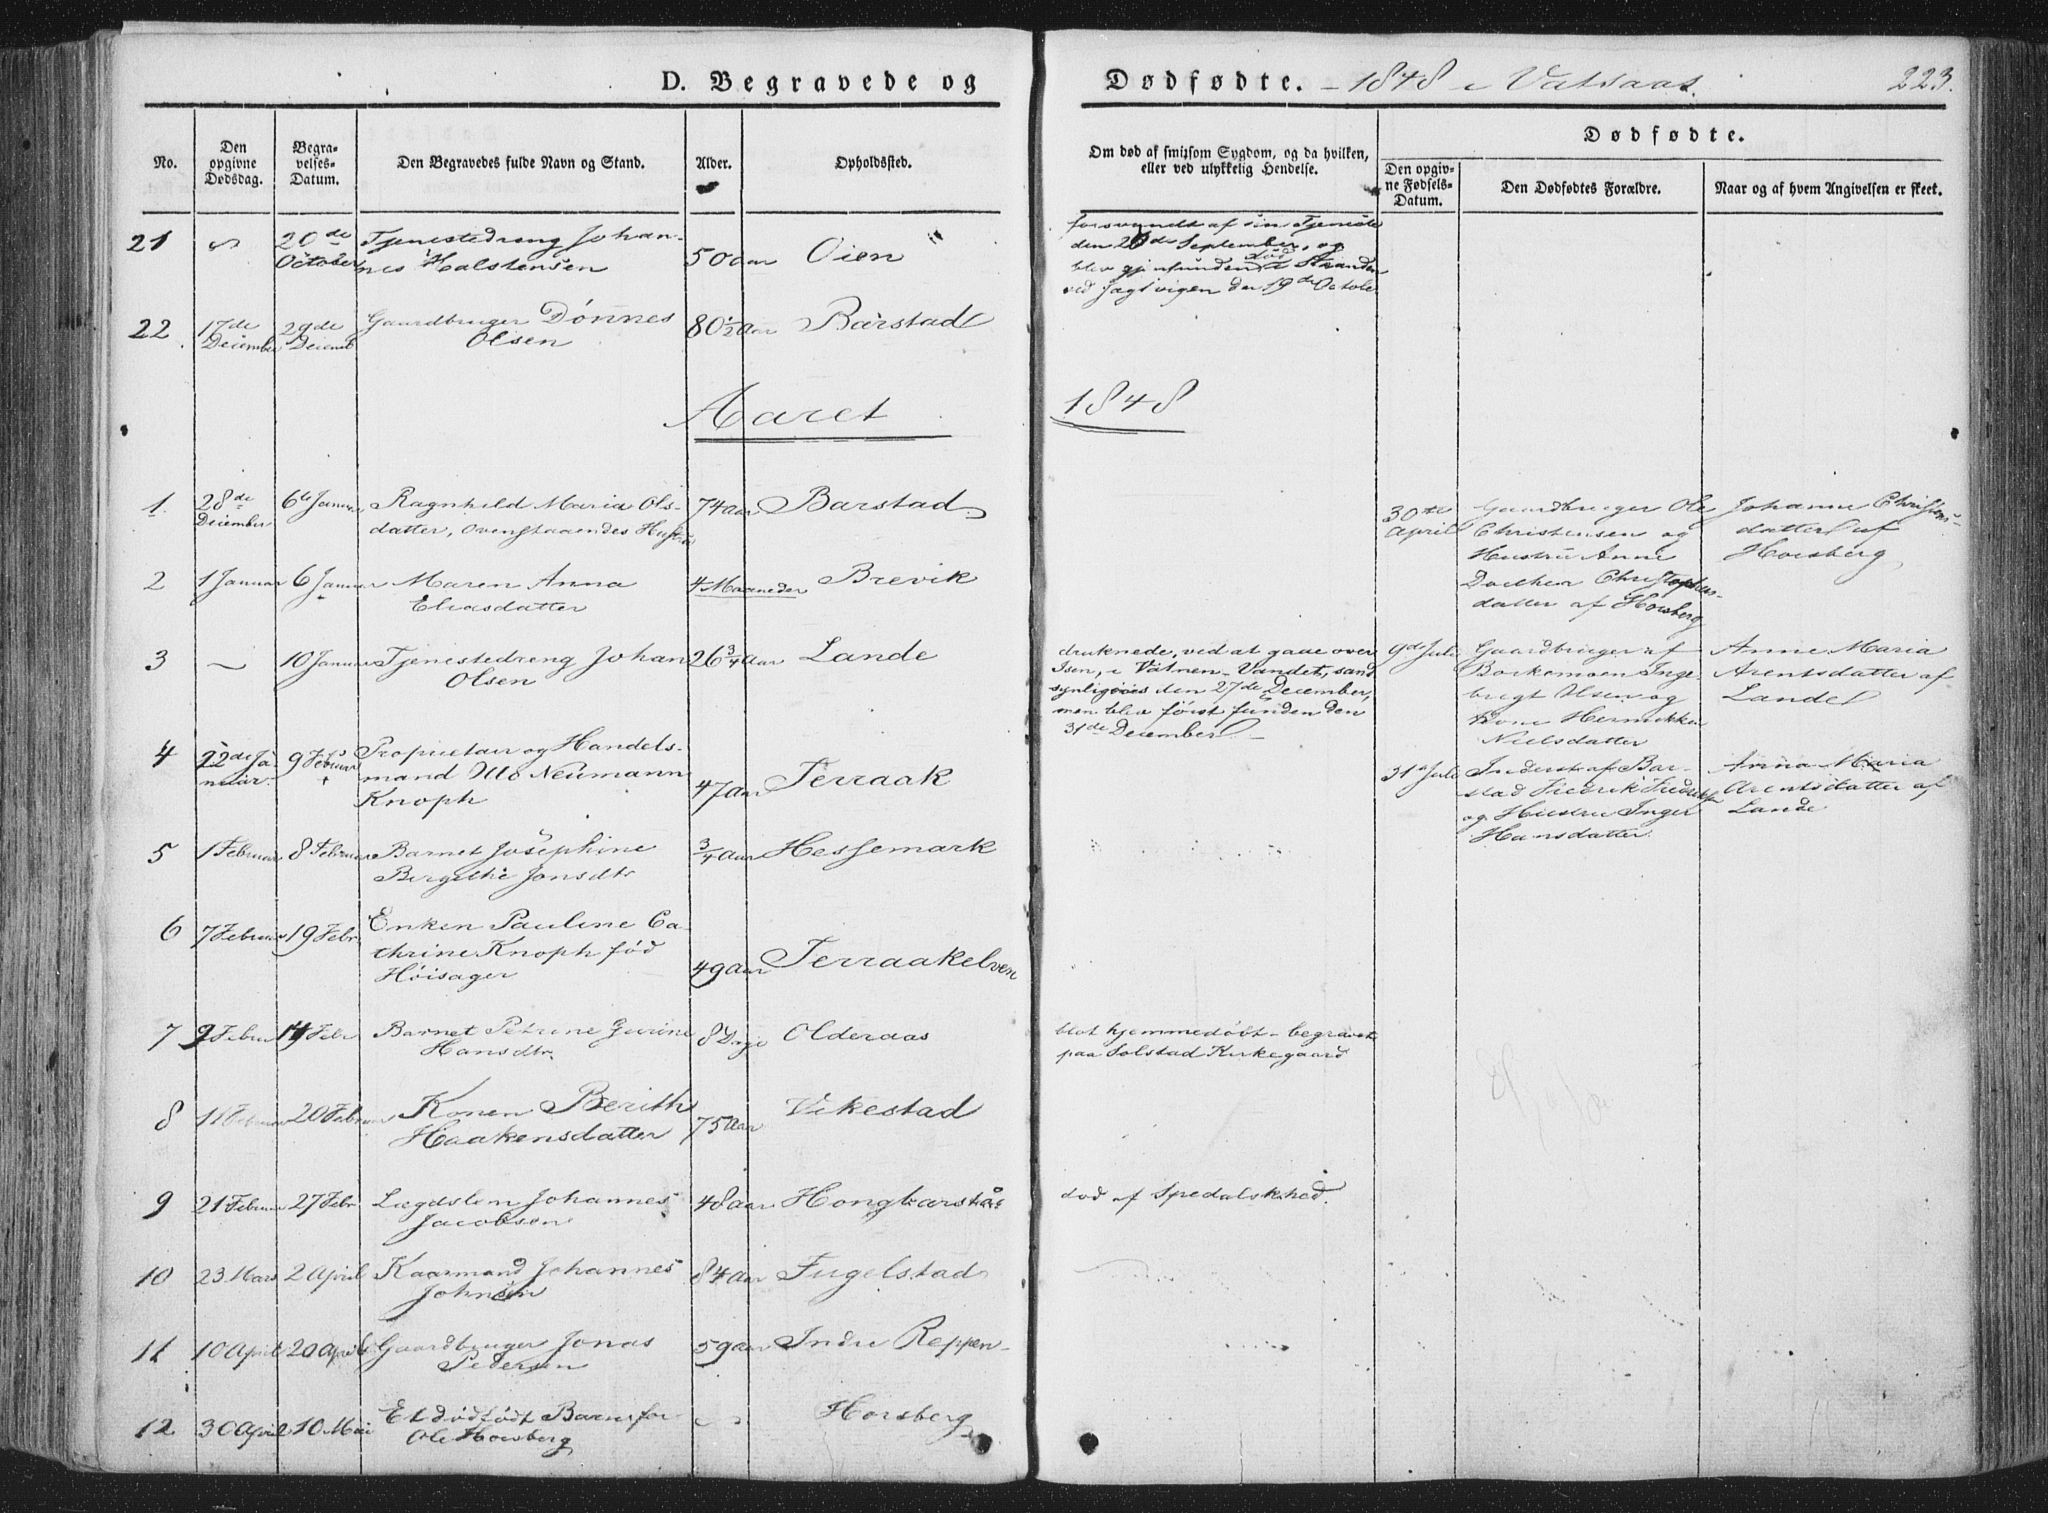 D. Begravede og Dødfødte. - 1848 - i Vatsaas. 223.
No.
Den opgivne Dødsdag.
Begravelses-Datum.
Den Begravedes fulde Navn og Stand.
Alder.
Opholdssted.
Om død af smitsom Sygdom, og da hvilken,
eller ved ulykkelig Hendelse.
Dødfødte.
Den opgivne Fødsels-Datum.
Den Dødfødtes Forældre.
Naar og af hvem Angivelsen er skeet.
21 20de October Tjenestedreng Johan-
nes Halstensen
50 aar Oien
forsvundt af sin Tjeneste
den 20de September, og
blev gjenfunden død i Stranden
ved Jagtvigen den 19de Octobr
22 17de December 29de Decemb Gaardbruger Dønnes
Olsen
80½ Aar Barstad
Aaret 1848
1. 28de December 6te Januar Ragnhild Maria Ols-
datter, ovenstaaendes Hustru
74 aar Barstad
30te April
Gaardbruger Ole
Christensen og
Hustru Anne
Dorthea Christophers-
datter af Horsberg
Johanne Christens-
datter af
Horsberg
2 1 Januar 6 Januar Maren Anna
Eliasdatter
4 Maaneder Brevik
3 - 10 Januar Tjenestedreng Johan
Olsen
26¾ Aar Lande
druknede, ved at gaae over
Isen, i Vatnen-Vandet, sand
synligviis den 27de December,
men blev først funden den
31de December
9de Juli
Gaardbruger af
Borkemoen Inge-
brigt Olsen og
Kone Hermikken
Nielsdatter
Anne Maria
Arentsdatter af
Lande
4 22de Januar 9 Februar Proprietair og Handels-
mand Otto Neumann
Knoph
47 Aar Terraak
31te Juli
Inderst af Bar-
stad Fredrik Fredriksen
og Hustru Inger
Hansdatter
Anna Maria
Arentsdatter af
Lande
5 1 Februar 8 Februar Barnet Josephine
Birgithe Jonsdtr
¾ Aar Hessemark
6 7 Februar 19 Febr Enken Pauline Ca-
thrine Knoph fød
Høisager
49 Aar Terraakelven
7 9 Februar 14 Febr Barnet Petrine
Hansdtr.
8 Dage Olderaas
blot hjemmedøbt - begravet
paa Solstad Kirkegaard
8 11 Februar 20 Februar Konen Berith
Haakensdatter
75 Aar Vikestad
9 21 Februar 27 Febr Lægdslem Johannes
Jacobsen
48 aar Hongbarstad
død af Spedalskhed.
10 23 Mars 2 April Kaarmand Johannes
Johnsen
84 Aar Fugelstad
11 10 April 20 April Gaardbruger Jonas
Pedersen
59 Aar Indre Reppen
12 30 April 10 Mai Et dødfødt Barn for
Ole Horsberg
Horsberg